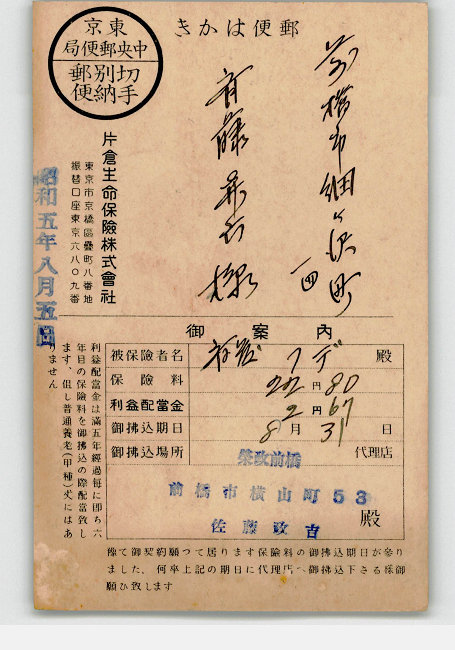 郵便はかき
東京
中央郵便局
切手別納郵便
前橋市細ヶ沢町
一四
斉藤
様
片倉生命保險株式會社
東京市京橋區疊町八番地
振替口座東京六八〇九番
昭和五年八月五日
御案内
被保險者名 殿
保險料 22円80
利益配當金 2円67
御拂込期日 8月31日
御拂込場所 代理店
前橋
前橋市横山町53
佐藤政吉 殿
利益配當金は滿五年經過毎に即ち六
年目の保險料を御拂込の際配當致し
ます、但し普通養老(甲種)丈にはあ
りません
豫て御契約願つて居ります保險料の御拂込期日が參り
ました、何卒上記の期日に代理店へ御拂込下さる樣御
願ひ致します